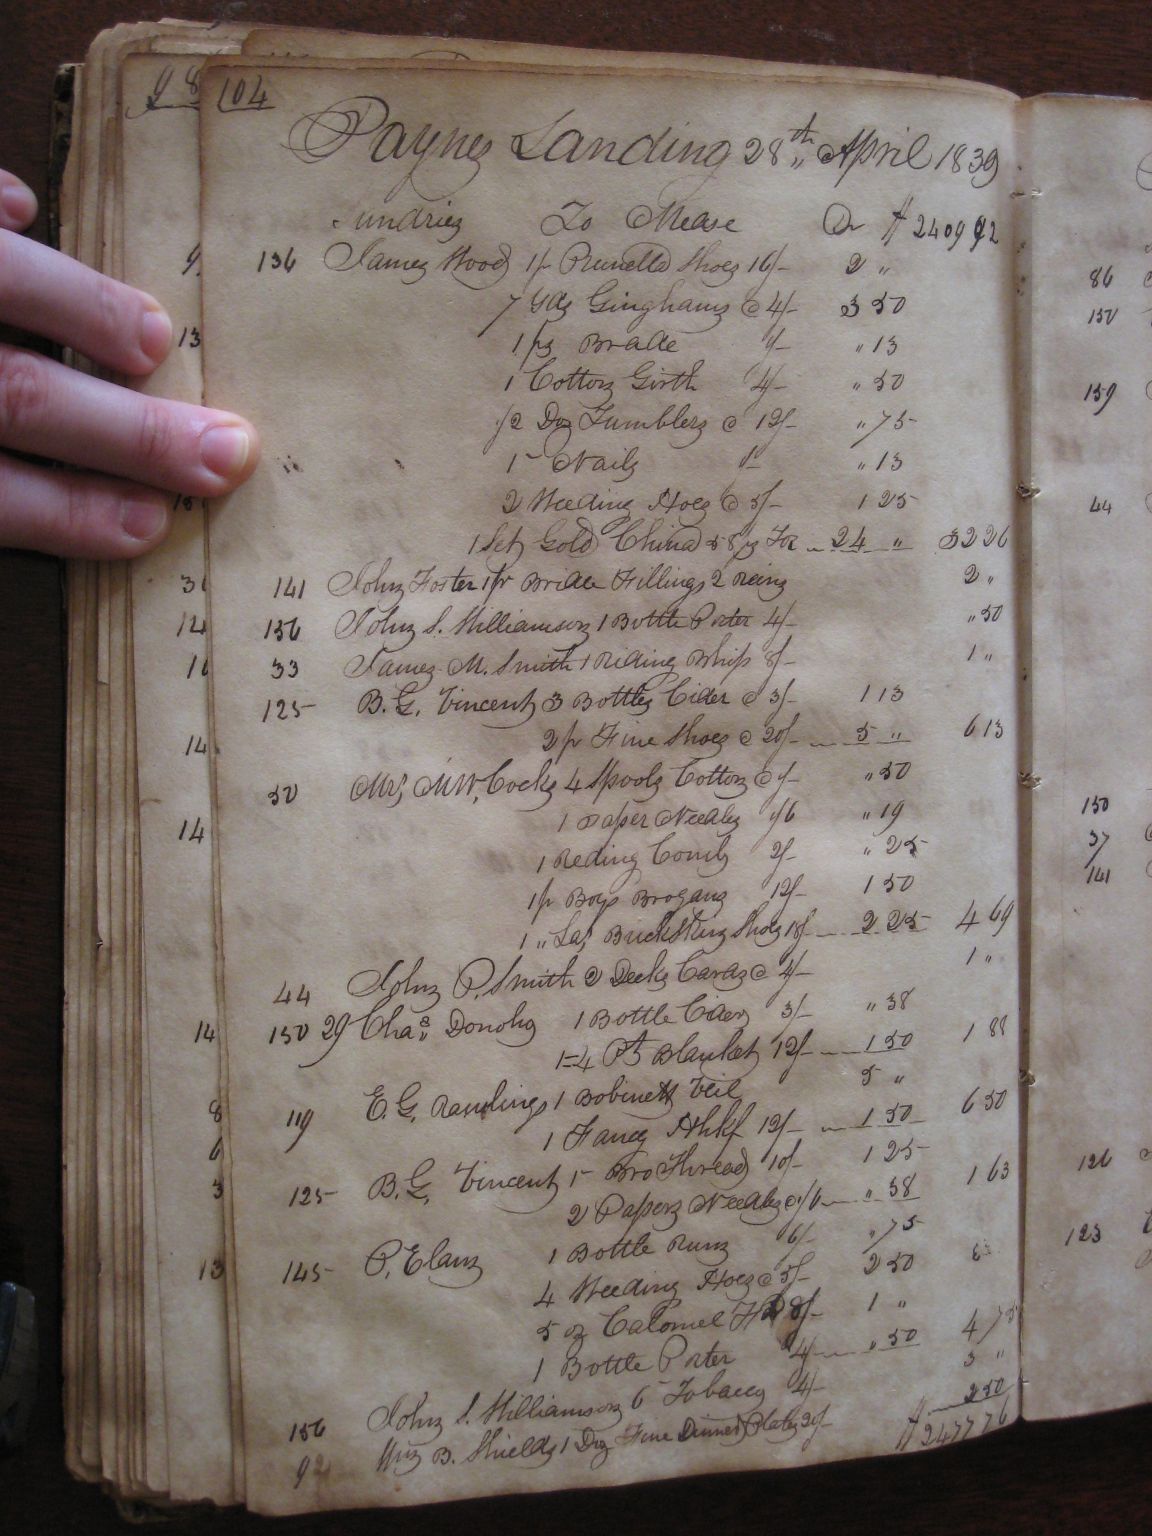 98
104
Paynes Landing 28th April 1839
Sundries To Mease Dr $2409 92
136 James Wood 1 pr Prunella Shoes 16/- 2 "
7 Yds Ginghams @ 4/- 3 50
1 ps Brade 1/- " 13
1 Cotton Girth 4/- " 50
1/2 Doz Tumblers @ 12/- " 75
1 Nails 1/- " 13
2 Weeding Hoes @ 5/- 1 25
1 Set Gold China 58 ps For 24 " 32 26
141 John Foster 1 pr Bridle Fillings 2 Reins 2 "
156 John S. Williamson 1 Bottle Porter 4/- " 50
33 James M. Smith 1 Riding Whip 8/- 1 "
125 B. G. Vincent 3 Bottles Cider @ 3/- 1 13
2 pr Fine Shoes @ 20/- 5 " 6 13
50 Mrs M. W. Cocks 4 Spools Cotton @ 1/- " 50
1 Paper Needles 1/6 " 19
1 Reding Comb 2/- " 25
1 pr Boys Brogans 12/- 1 50
1 " Las Buckskin Shoes 18/- 2 25 4 69
44 John P. Smith 2 Decks Cards @ 4/- 1 "
150 29 Chas Donoho 1 Bottle Cider 3/- " 38
1=4 Pt Blanket 12/- 1 50 1 88
119 E. G. Rawlings 1 Bobinett Veil 5 "
1 Fancy Hhkf 12/- 1 50 6 50
125 B. G. Vincent 1 Bro Thread 10/- 1 25
2 Papers Needles @ 1/6 " 38 1 63
145 P. Elam 1 Bottle Rum 6/- " 75
4 Weeding Hoes @ 5/- 2 50
5 oz Calomel 8/- 1 "
1 Bottle Porter 4/- " 50 4 75
156 John S. Williamson 6 Tobacco 4/- 3 "
92 Wm B. Shields 1 Doz Fine Dinner Plates 20/- 2 50
$2477 76
9
13
14
14
14
14
8
6
3
13
86
150
139
44
150
37
141
126
123